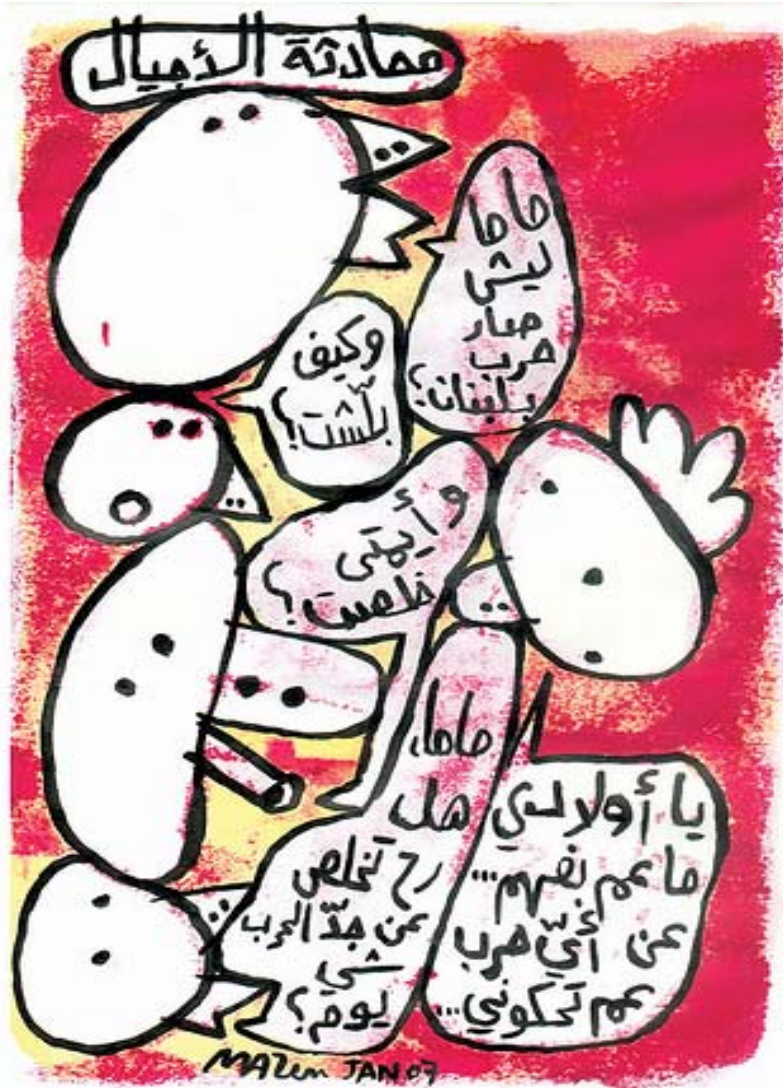 محادثة الأجيال
ماما
ليش
صار
حرب
بلبنان؟
وكيف
بلّشت؟
وأيمتى
خلصت؟
ماما،
هل
رح تخلص
عن جدّ الحرب
شي
يوم؟
يا أولادي
ما عم بفهم...
عن أيّ حرب
عم تحكوني...
MAZen JAN 07